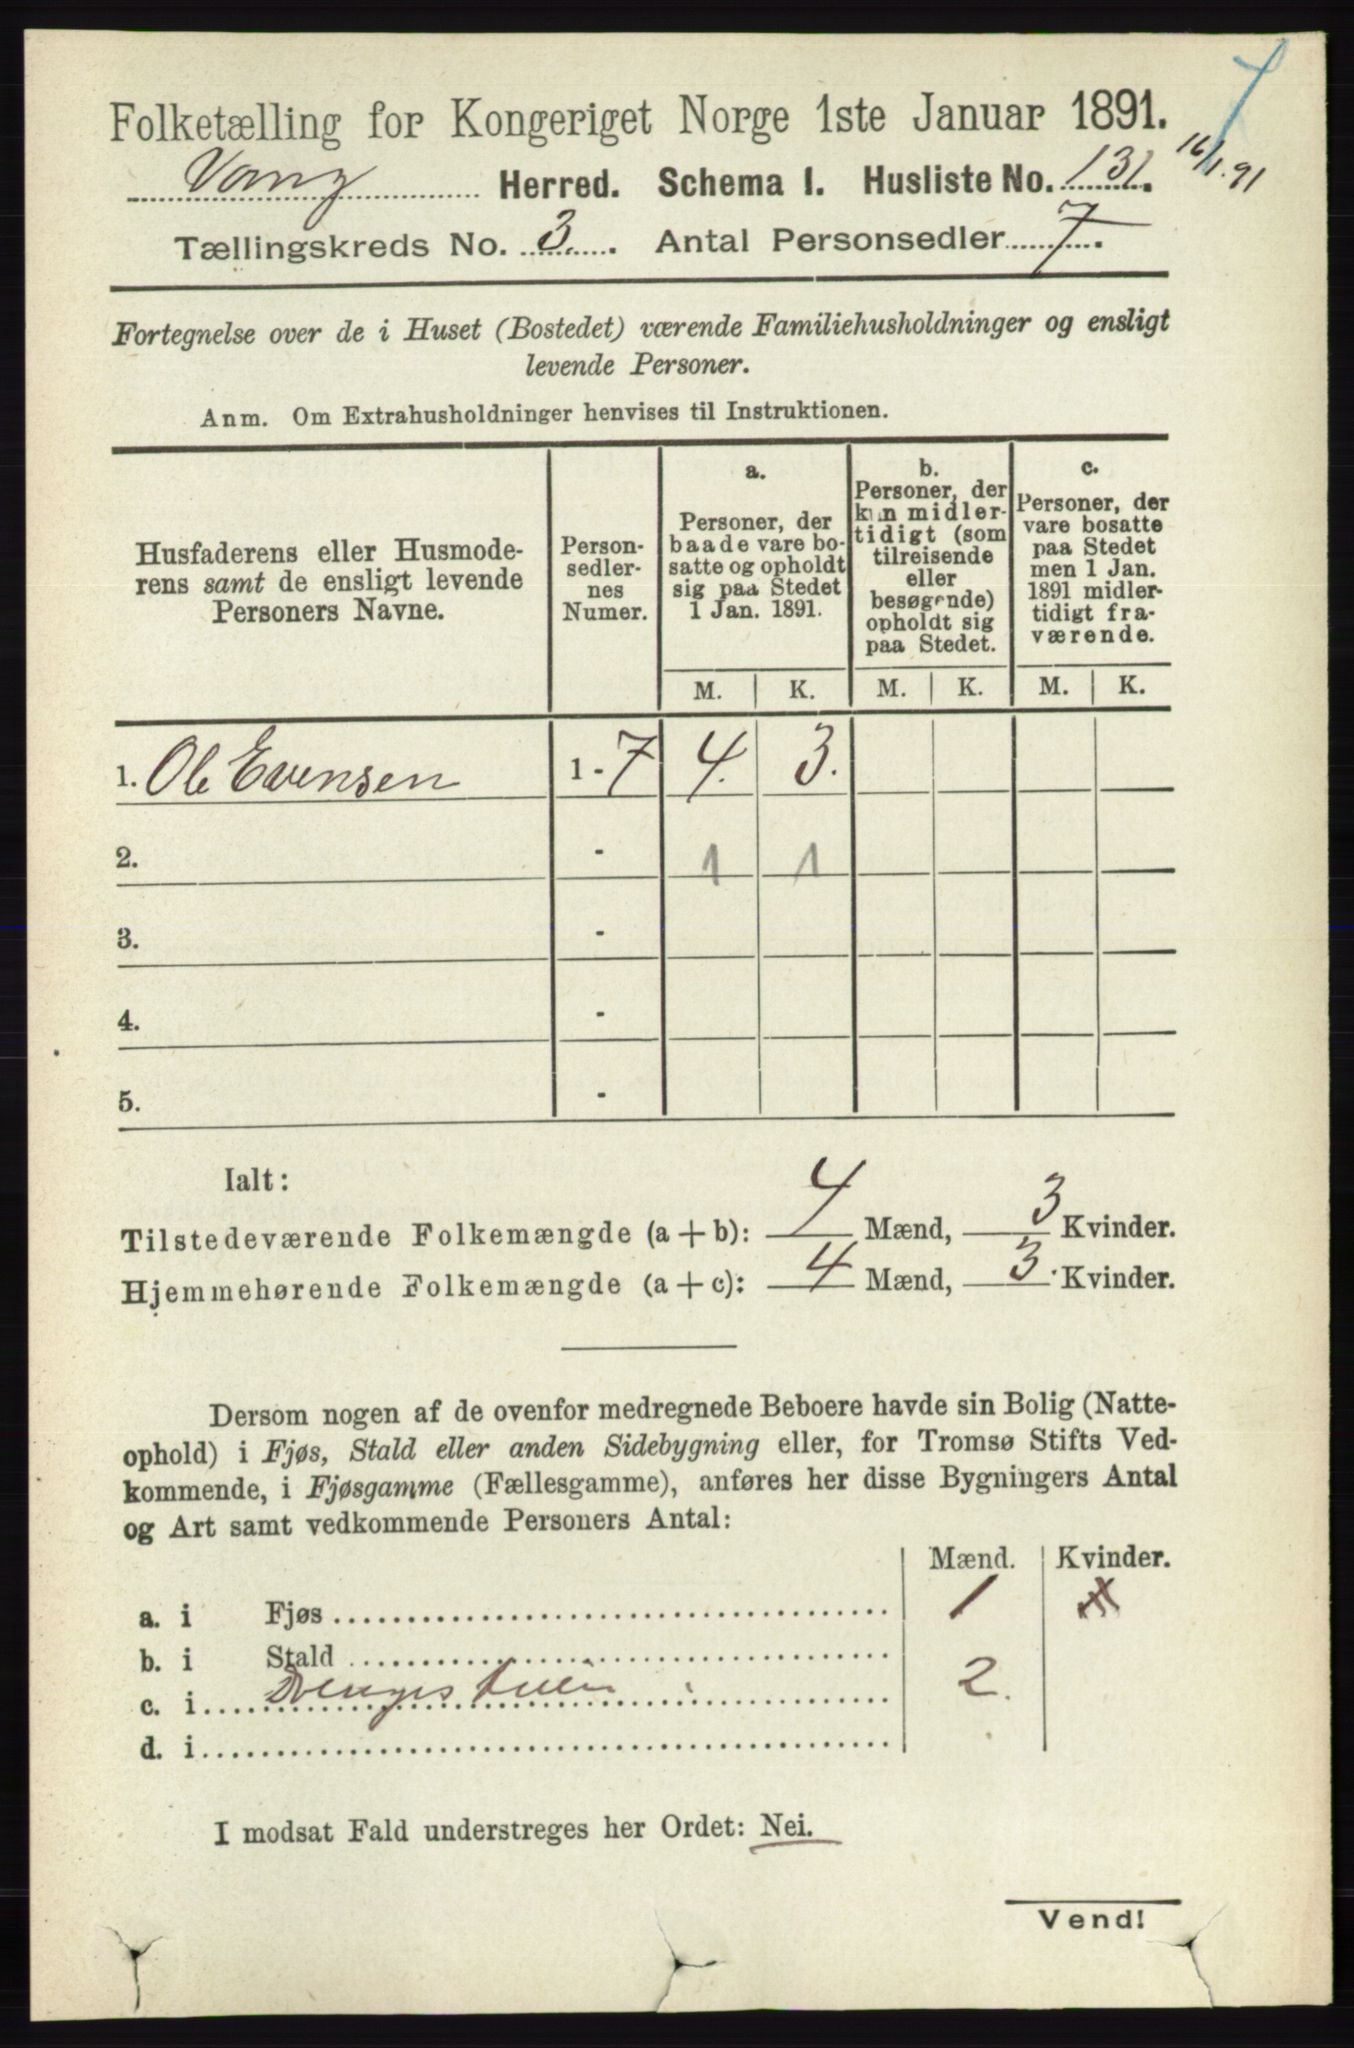 Folketælling for Kongeriget Norge 1ste Januar 1891.
Vang Herred. Schema 1. Husliste No. 131.
16/1.91
Tællingskreds No. 3. Antal Personsedler 7.
Fortegnelse over de i Huset (Bostedet) værende Familiehusholdninger og ensligt
levende Personer.
Anm. Om Extrahusholdninger henvises til Instruktionen.
Husfaderens eller Husmode-
rens samt de ensligt levende
Personers Navne.
Person-
sedler-
nes
Numer.
a.
Personer, der
baade vare bo-
satte og opholdt
sig paa Stedet
1 Jan. 1891.
b.
Personer, der
kun midler-
tidigt (som
tilreisende
eller
besøgende)
opholdt sig
paa Stedet.
c.
Personer, der
vare bosatte
paa Stedet
men 1 Jan.
1891 midler-
tidigt fra-
værende.
M. K. M. K. M. K.
1. Ole Evensen 1 - 7 4. 3.
2. - 1 1
3. -
4. -
5. -
Ialt:
Tilstedeværende Folkemængde (a + b): 4 Mænd, 3 Kvinder.
Hjemmehørende Folkemængde (a + c): 4 Mænd, 3 Kvinder.
Dersom nogen af de ovenfor medregnede Beboere havde sin Bolig (Natte-
ophold) i Fjøs, Stald eller anden Sidebygning eller, for Tromsø Stifts Ved-
kommende, i Fjøsgamme (Fællesgamme), anføres her disse Bygningers Antal
og Art samt vedkommende Personers Antal:
Mænd. Kvinder.
a. i Fjøs 1
b. i Stald
c. i 2.
d. i
I modsat Fald understreges her Ordet: Nei.
Vend!